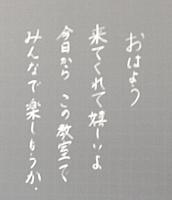 おはよう
来てくれて嬉しいよ
今日から この教室で
みんなで楽しもうか.